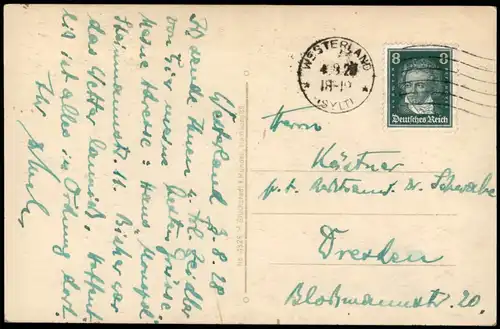 Westerland 3.8.28
Ich sende Ihnen u. Frl. Zeidler
von hier meine besten Grüsse.
Meine Adresse: Haus
Steinmannstr. 11. Bisher war
das Wetter Hoffent
lich ist alles in Ordnung dort.
Ihr
WESTERLAND
18-19
(SYLT)
8 8
Deutsches Reich
Herrn
Kästner
Dr. Schwabe
Dresden
Blochmannstr. 20.